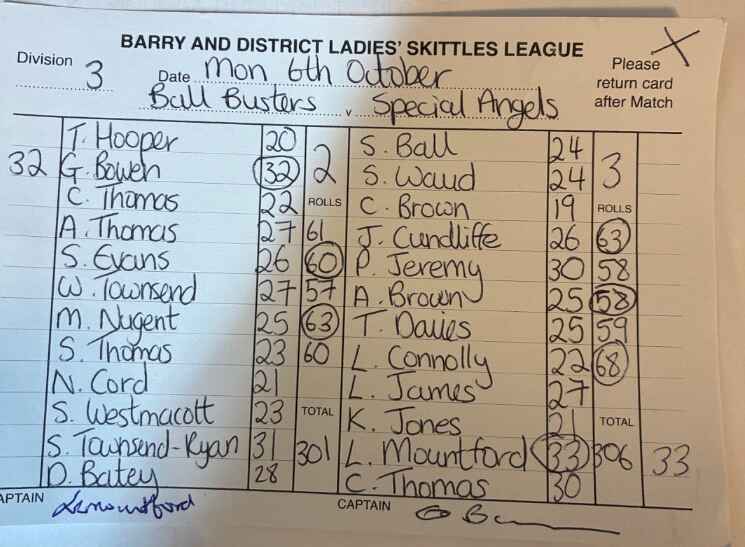 BARRY AND DISTRICT LADIES' SKITTLES LEAGUE
Division 3 Date Mon 6th October Please return card after Match X
Ball Busters v Special Angels
T. Hooper 20 2 S. Ball 24 3
32 G. Bowen 32 S. Waud 24
C. Thomas 22 ROLLS C. Brown 19 ROLLS
A. Thomas 27 61 J. Cundliffe 26 63
S. Evans 26 60 P. Jeremy 30 58
W. Townsend 27 57 A. Brown 25 58
M. Nugent 25 63 T. Davies 25 59
S. Thomas 23 60 L. Connolly 22 68
N. Cord 21 L. James 27
S. Westmacott 23 TOTAL K. Jones 21 TOTAL
S. Townsend-Ryan 31 301 L. Mountford 33 306 33
D. Batey 28 C. Thomas 30
CAPTAIN Lmountford CAPTAIN